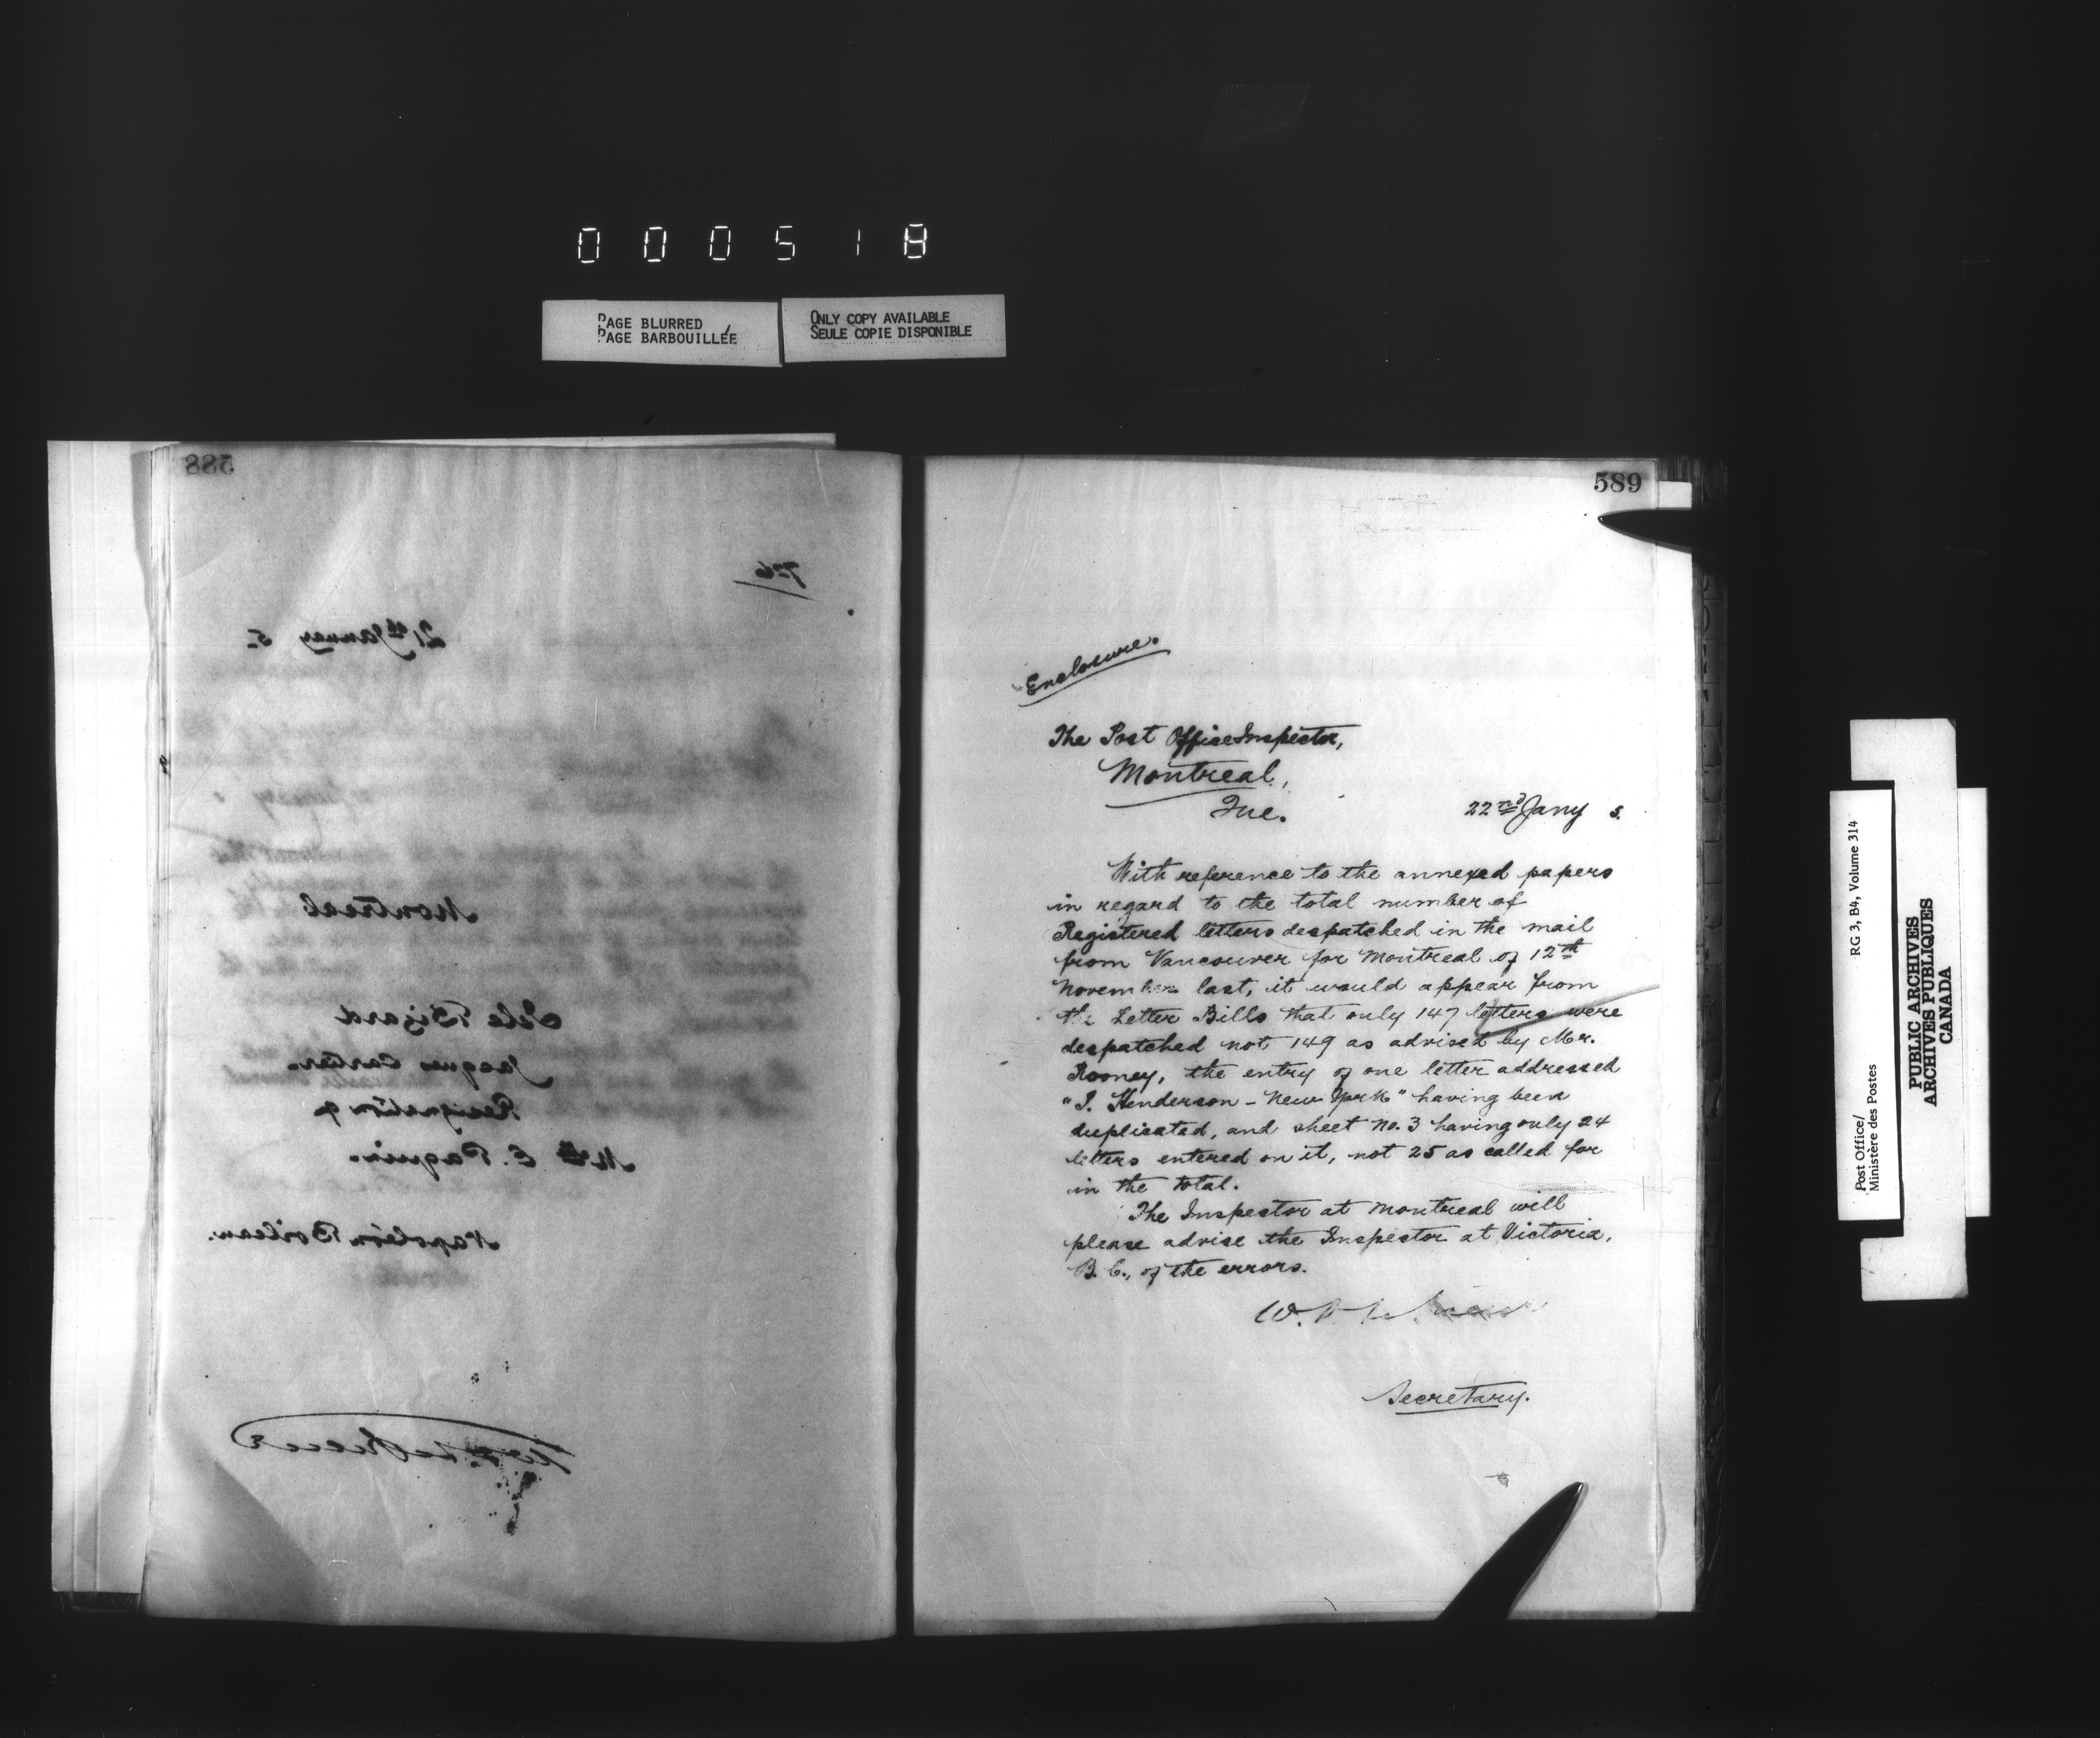 000518
PAGE BLURRED
PAGE BARBOUILLÉE
ONLY COPY AVAILABLE
SEULE COPIE DISPONIBLE
588
726
21st January 5.
Montreal
Isle Bizard
Jacques Cartier.
Resignation of
E. Paquin.
Napoléon Boileau.
589
Enclosure.
The Post Office Inspector,
Montreal,
Que.
22nd Jany 5.
With reference to the annexed papers
in regard to the total number of
Registered letters despatched in the mail
from Vancouver for Montreal of 12th
November last, it would appear from
the Letter Bills that only 147 letters were
despatched not 149 as advised by Mr.
Rooney, the entry of one letter addressed
"J. Henderson - New York" having been
duplicated, and sheet No. 3 having only 24
letters entered on it, not 25 as called for
in the total.
The Inspector at Montreal will
please advise the Inspector at Victoria,
B.C., of the errors.
W.
Secretary.
RG 3, B4, Volume 314
Post Office/
Ministère des Postes
PUBLIC ARCHIVES
ARCHIVES PUBLIQUES
CANADA